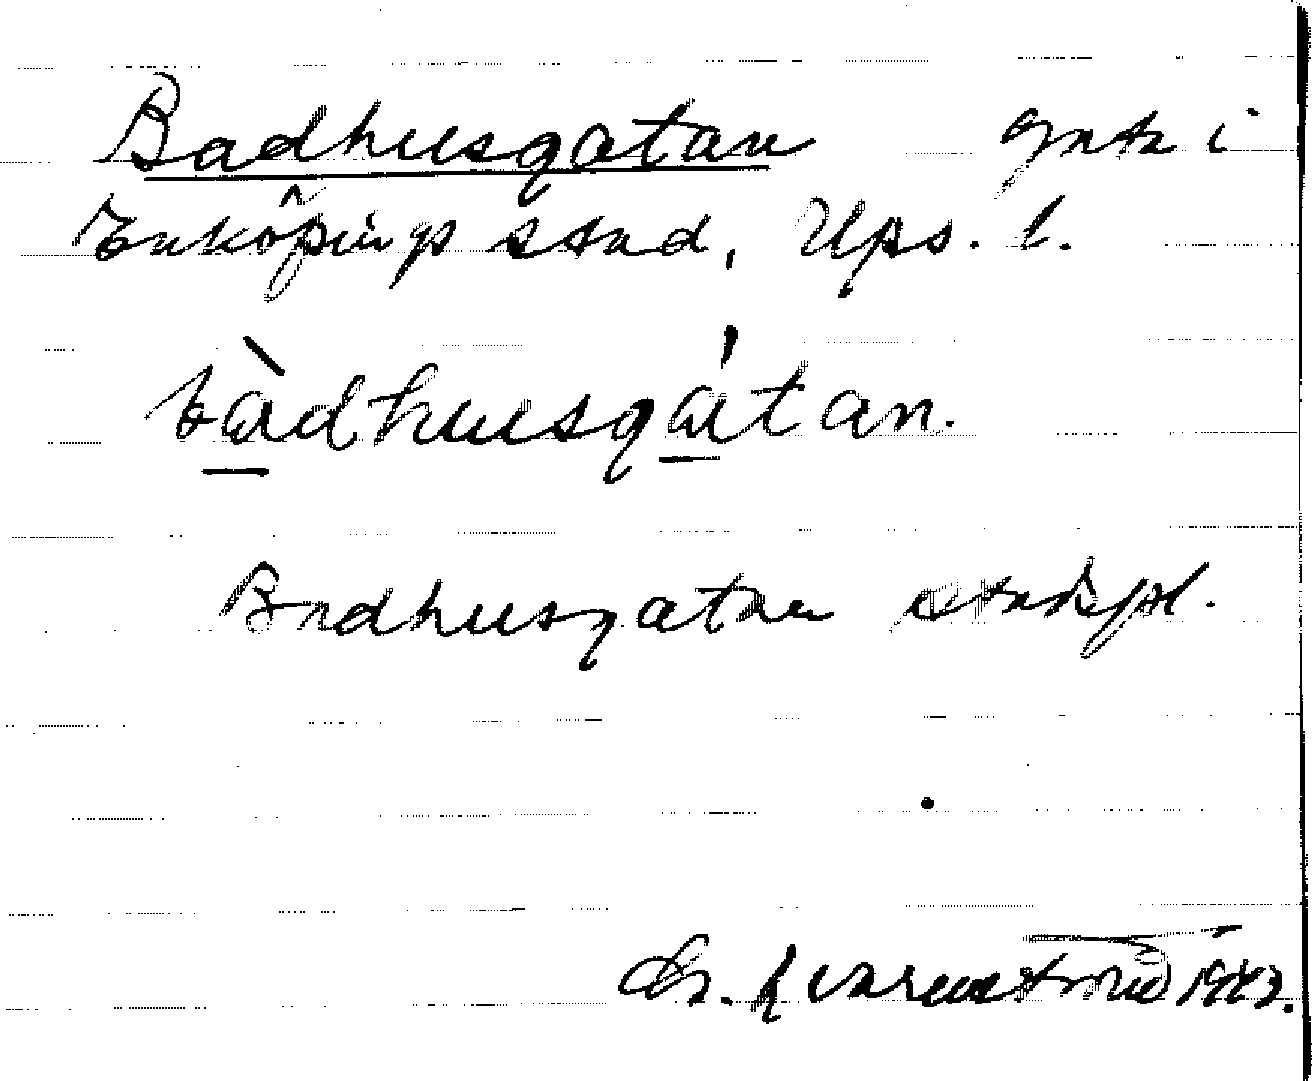 Badhusgatan gata i
Enköpings stad, Ups. l.
bàdhusgátan.
Badhusgatan stadspl.
1943.